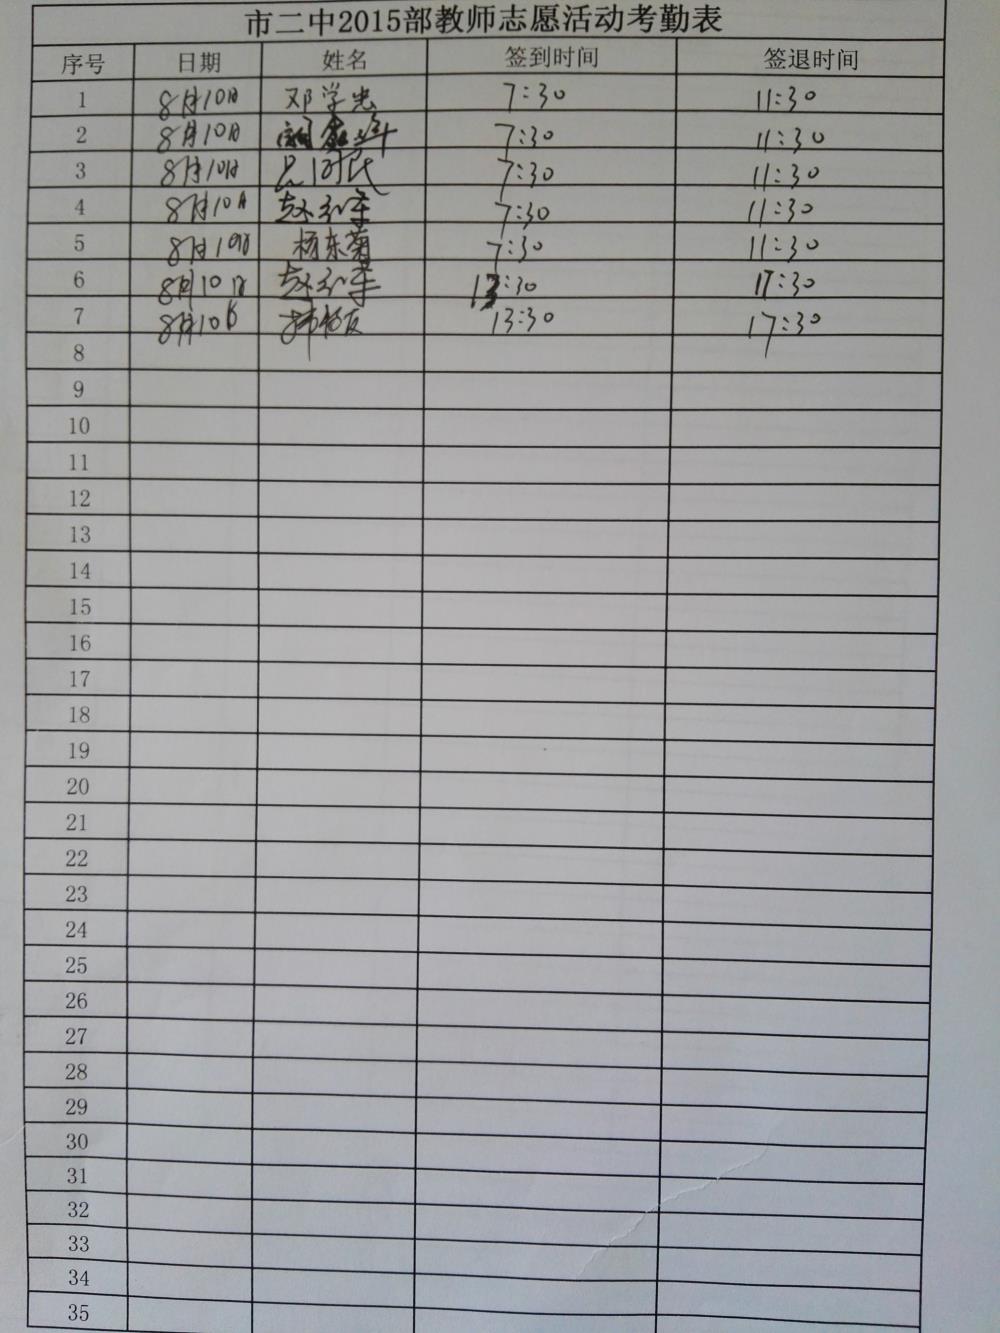 市二中2015部教师志愿活动考勤表
序号 日期 姓名 签到时间 签退时间
1 8月10日 邓学忠 7:30 11:30
2 8月10日 7:30 11:30
3 8月10日 7:30 11:30
4 8月10日 赵红军 7:30 11:30
5 8月10日 杨东菊 7:30 11:30
6 8月10日 赵红军 13:30 17:30
7 8月10日 13:30 17:30
8
9
10
11
12
13
14
15
16
17
18
19
20
21
22
23
24
25
26
27
28
29
30
31
32
33
34
35